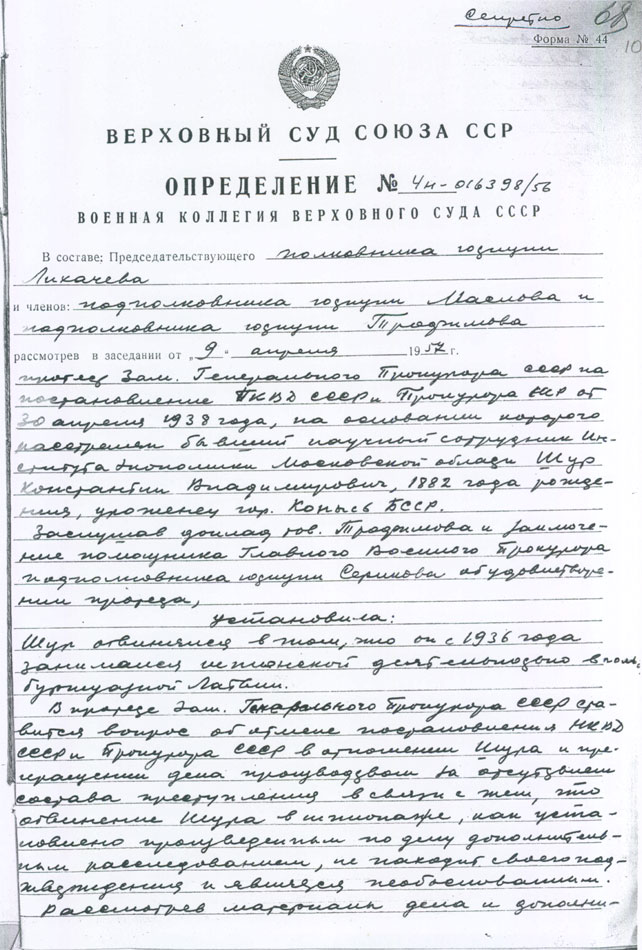 Секретно 68
Форма № 44
10
ВЕРХОВНЫЙ СУД СОЮЗА ССР
ОПРЕДЕЛЕНИЕ № 4н-016398/56
ВОЕННАЯ КОЛЛЕГИЯ ВЕРХОВНОГО СУДА СССР
В составе: Председательствующего полковника юстиции
Лихачева
и членов: подполковника юстиции Маслова и
подполковника юстиции Трофимова
рассмотрев в заседании от „9“ апреля 1957 г.
протест Зам. Генерального Прокурора СССР на
постановление НКВД СССР и Прокурора СССР от
30 апреля 1938 года, на основании которого
расстрелян бывший научный сотрудник Ин-
ститута экономики Московской области Шур
Константин Владимирович, 1882 года рожде-
ния, уроженец гор. Копысь БССР.
Заслушав доклад тов. Трофимова и заключе-
ние помощника Главного Военного Прокурора
подполковника юстиции Серикова об удовлетворе-
нии протеста,
установила:
Шур обвинялся в том, что он с 1936 года
занимался шпионской деятельностью в польз.
буржуазной Латвии.
В протесте Зам. Генерального Прокурора СССР ста-
вится вопрос об отмене постановления НКВД
СССР и Прокурора СССР в отношении Шура и пре-
кращении дела производством за отсутствием
состава преступления в связи с тем, что
обвинение Шура в шпионаже, как уста-
новлено произведенным по делу дополнитель-
ным расследованием, не находит своего под-
тверждения и является необоснованным.
Рассмотрев материалы дела и дополни-